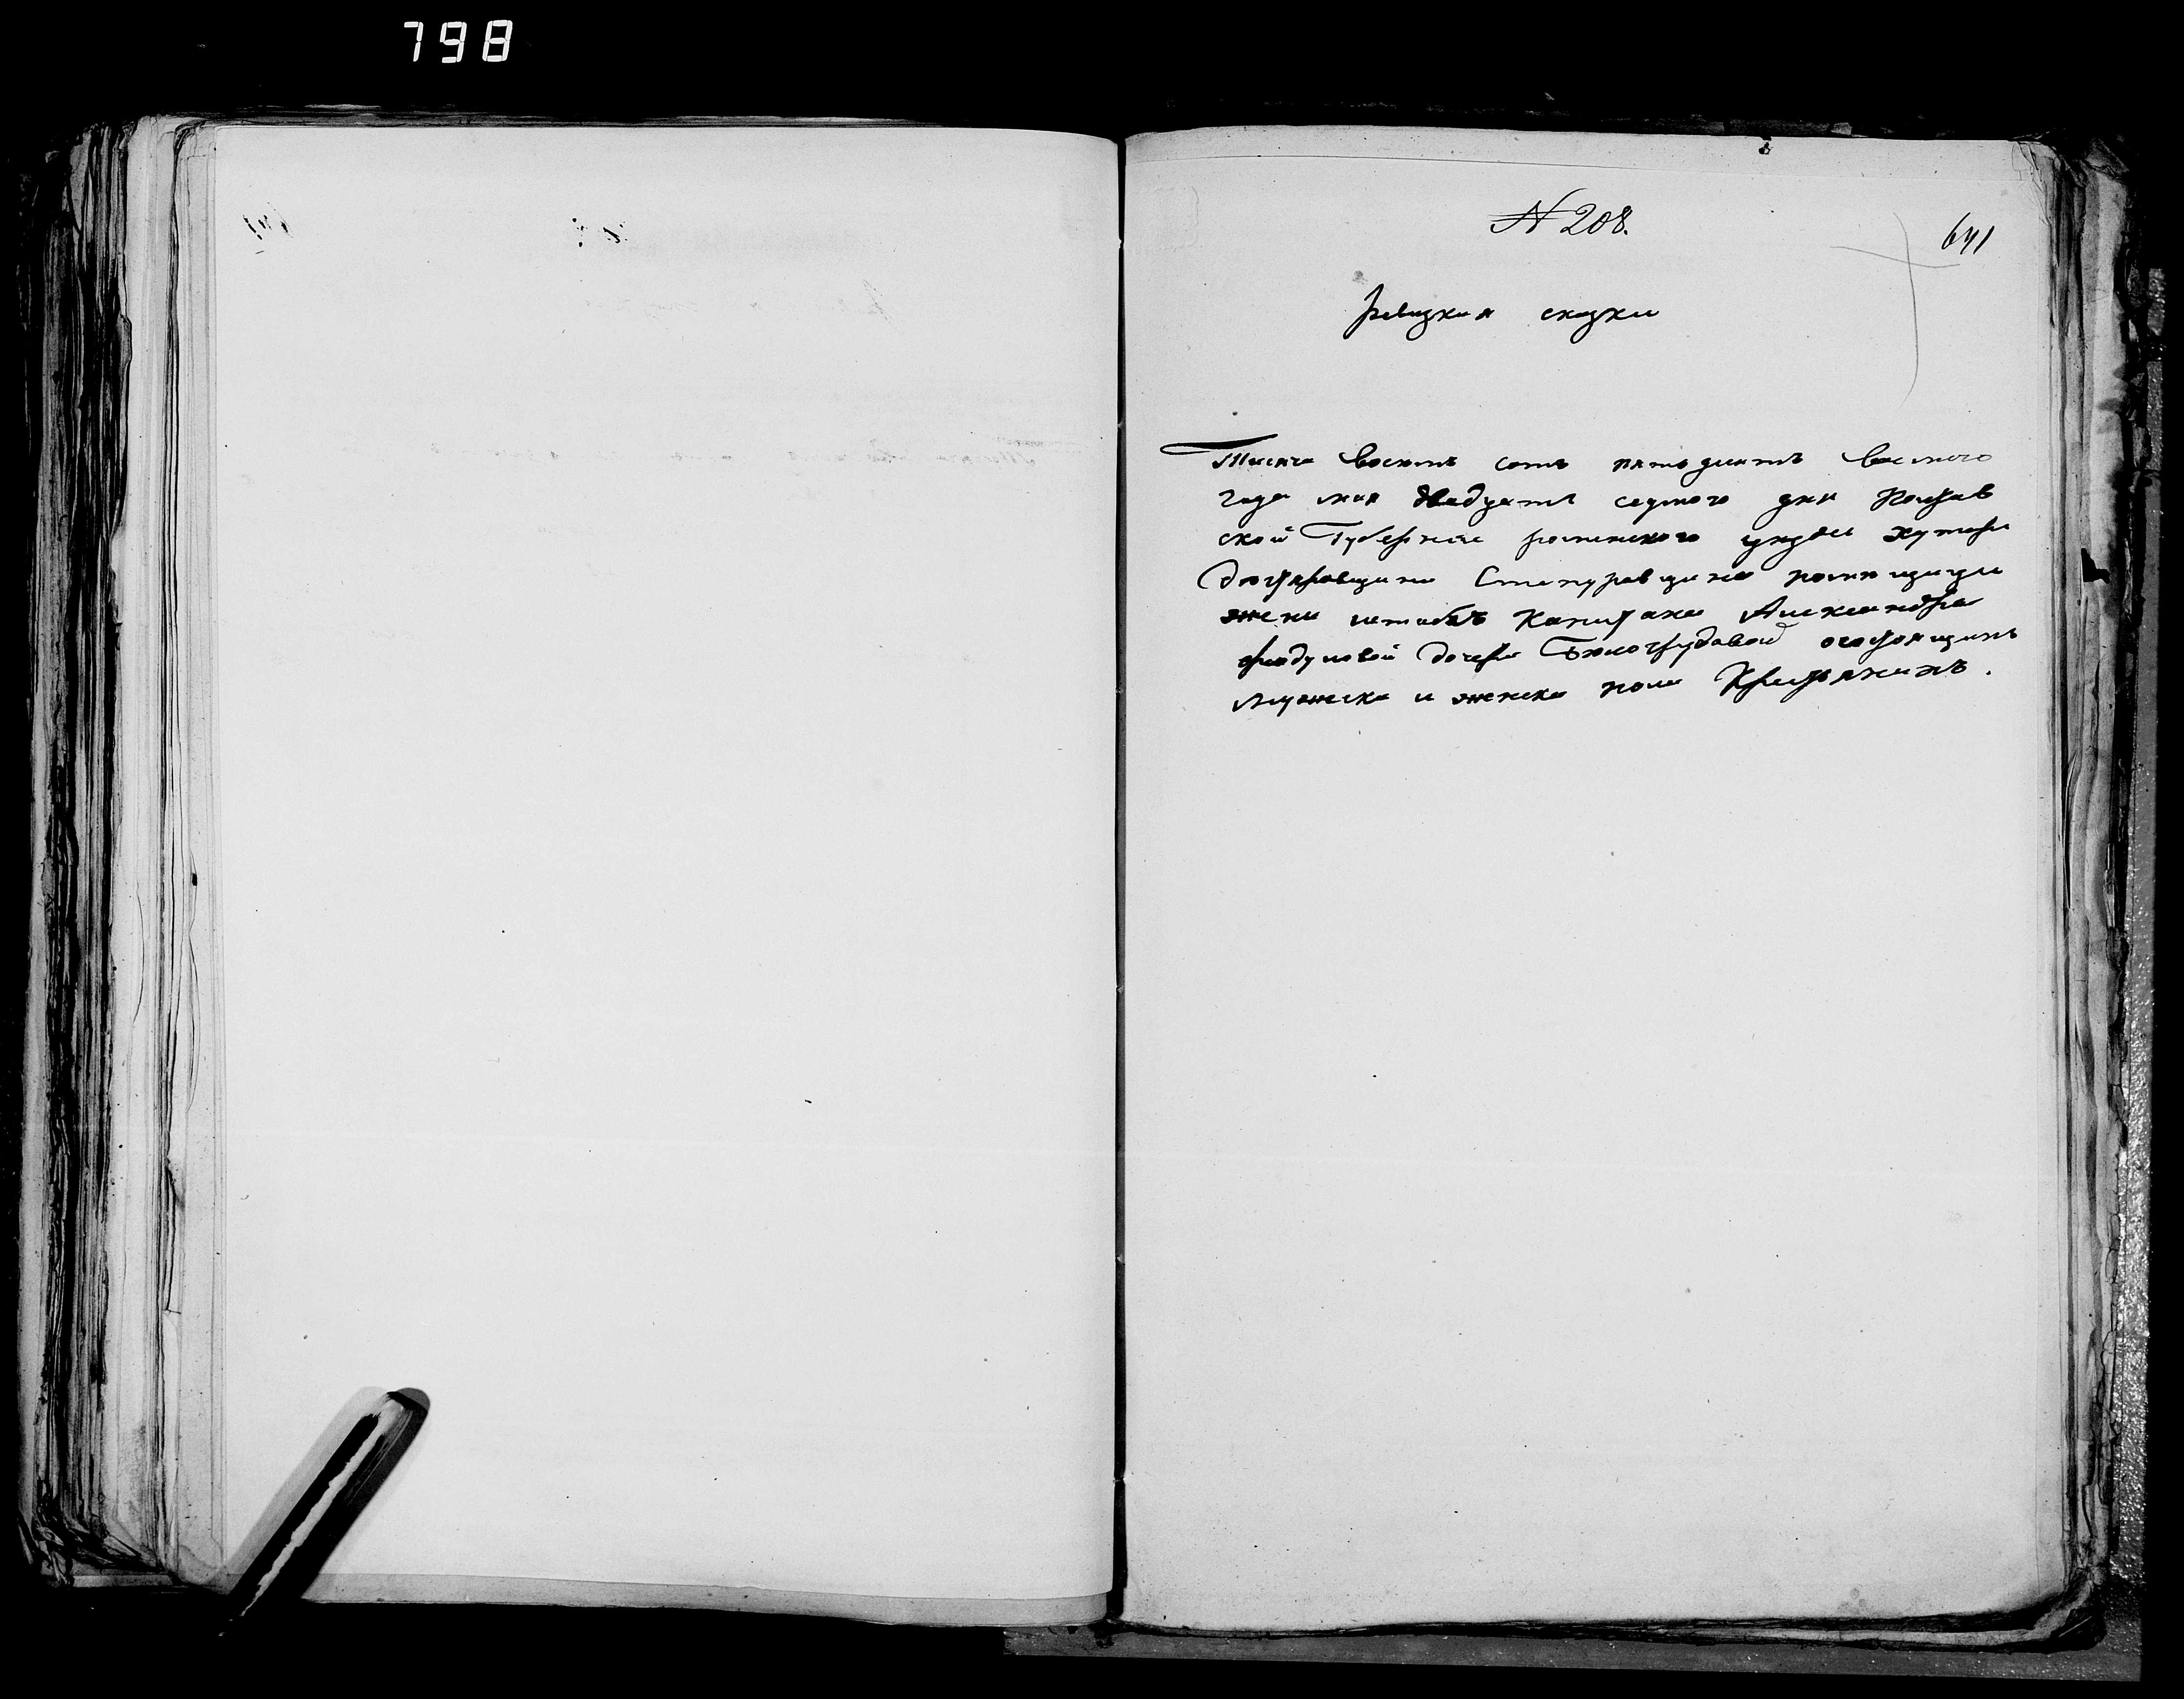 798
N 208.
641
Ревизкия сказки
Тисяча восемъ сотъ пятьдесятъ восмого
года мая двадцать седмого дня Полтав
ской Губерние роменского уезда хутора
Степуровщина помещици
жени штабсъ Капитана Александри
дочери Белогрудовой о состоящихъ
мужеска и женска пола Крестьянахъ.